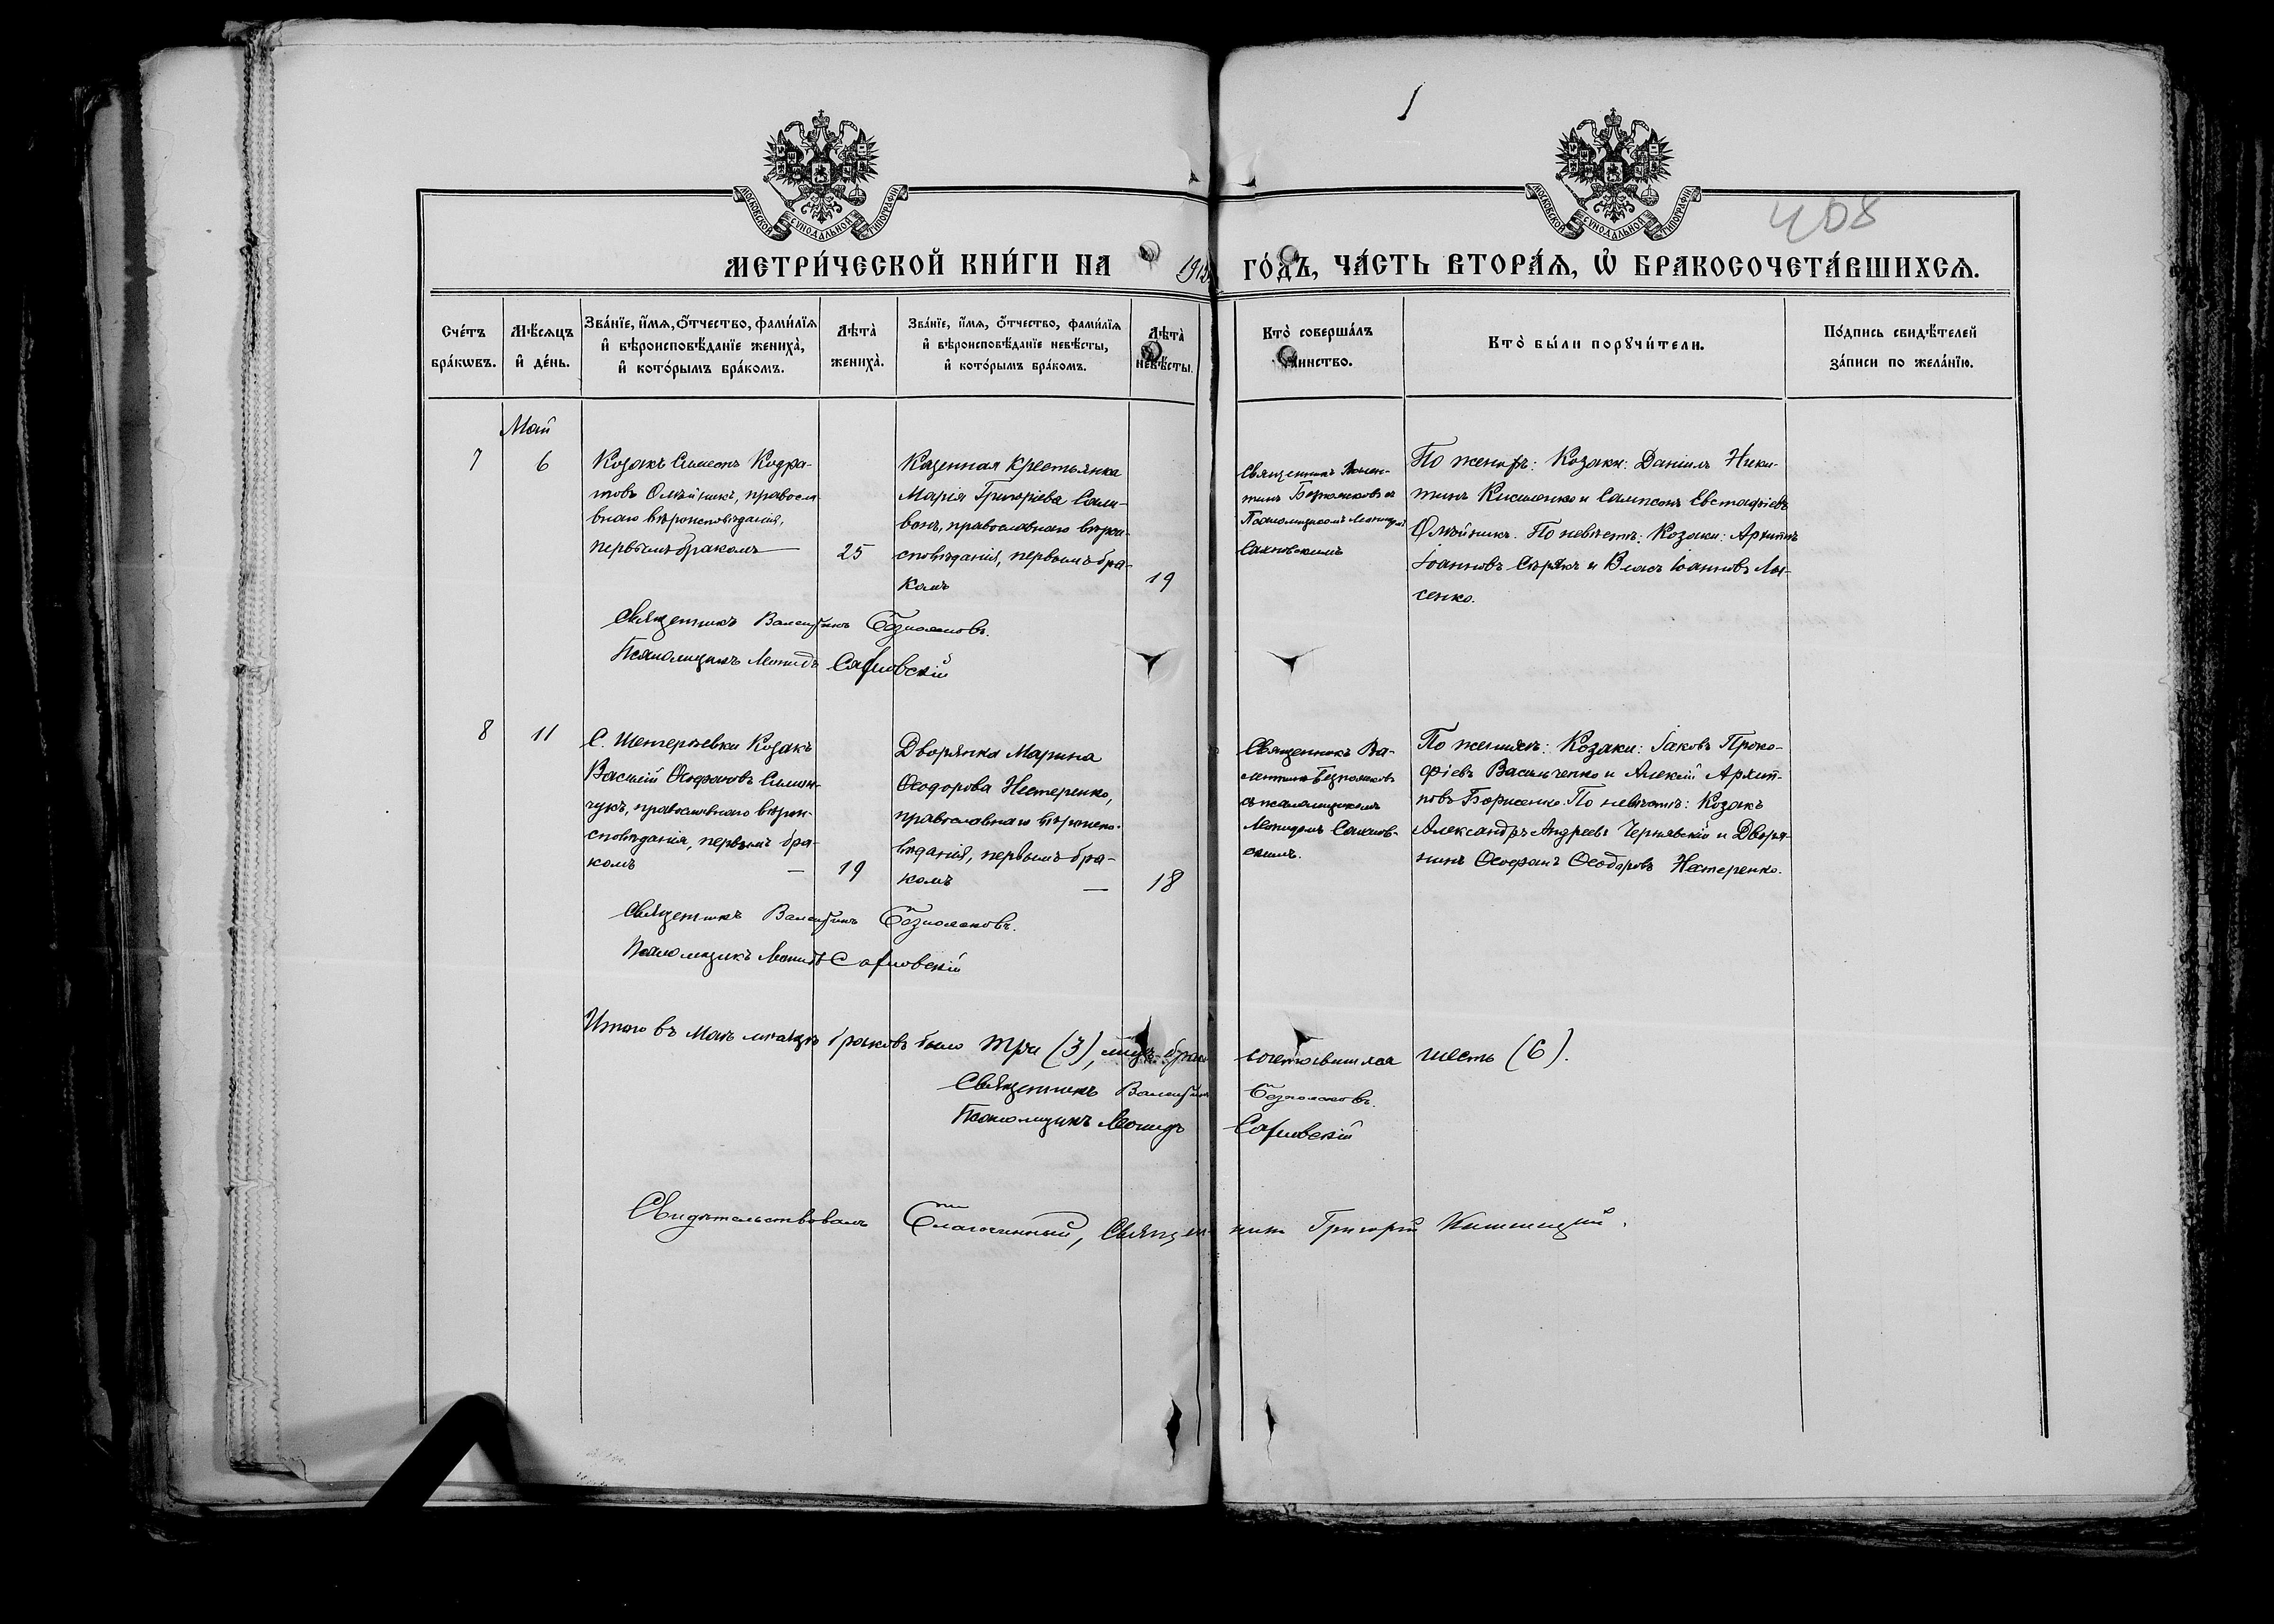 1
408
МОСКОВСКОЙ СѴНОДАЛЬНОЙ ТИПОГРАФІИ
МОСКОВСКОЙ СѴНОДАЛЬНОЙ ТИПОГРАФІИ
МЕТРИ́ЧЕСКОЙ КНИ́ГИ НА 1915 ГО́ДЪ, ЧА́СТЬ ВТОРА́Ѧ, Ѡ҆ БРАКОСОЧЕТА́ВШИХСѦ.
Сче́тъ
бра́кѡвъ.
Мѣ́сяцъ
и҆ де́нь.
Зва́нїе, и҆́мѧ, ѻ҆́тчество, фами́лїѧ
и҆ вѣроисповѣ́данїе жениха̀,
и҆ кото́рымъ бра́комъ.
Лѣта̀
жениха̀.
Зва́нїе, и҆́мѧ, ѻ҆́тчество, фами́лїѧ
и҆ вѣроисповѣ́данїе невѣ́сты,
и҆ кото́рымъ бра́комъ.
Лѣта̀
невѣ́сты.
Кто̀ соверша́лъ
таинство.
Кто̀ бы́ли порꙋчи́тели.
По́дпись свидѣ́телей
за́писи по жела́нїю.
Май
7
6
Козакъ Симеонъ Кодра-
товъ Олѣйникъ, правосла
внаго вѣроисповѣданія,
первымъ бракомъ —
25
Казенная крестьянка
Марія Григоріева Сали-
вонъ, православнаго вѣрои-
сповѣданія, первымъ бра-
комъ
19
Священникъ Вален-
тинъ Безполековъ съ
Псаломщикомъ Леонидомъ
Сахновскимъ
По женихѣ: Козаки: Даніилъ Ники-
тинъ Кисиленко и Сампсонъ Евстафіевъ
Олѣйникъ. По невѣстѣ: Козаки: Архипъ
Іоанновъ Сѣрякъ и Власъ Іоанновъ Лы-
сенко.
Священникъ Валентинъ Безполековъ.
Псаломщикъ Леонидъ Сахновскій
8
11
С. Шетеревки Козакъ
Василій Ѳеофановъ Симон-
чукъ, православнаго вѣрои-
сповѣданія, первымъ бра-
комъ —
19
Дворянка Марина
Ѳеодорова Нестеренко,
православнаго вѣроиспо-
вѣданія, первымъ бра-
комъ —
18
Священникъ Ва-
лентинъ Безполековъ
съ псаломщикомъ
Леонидомъ Сахнов-
скимъ.
По женихѣ: Козаки: Іаковъ Проко-
фіевъ Васильченко и Алексій Архип-
повъ Борисенко. По невѣстѣ: Козакъ
Александръ Андреевъ Чернявскій и Дворя-
нинъ Ѳеофанъ Ѳеодоровъ Нестеренко.
Священникъ Валентинъ Безполековъ.
Псаломщикъ Леонидъ Сахновскій
Итого въ маѣ мѣсяцѣ браковъ было три (3), лицъ брако сочетавшихся шесть (6).
Священникъ Валентинъ Безполековъ.
Псаломщикъ Леонидъ Сахновскій
Свидѣтельствовалъ Благочинный, Священ- никъ Григорій